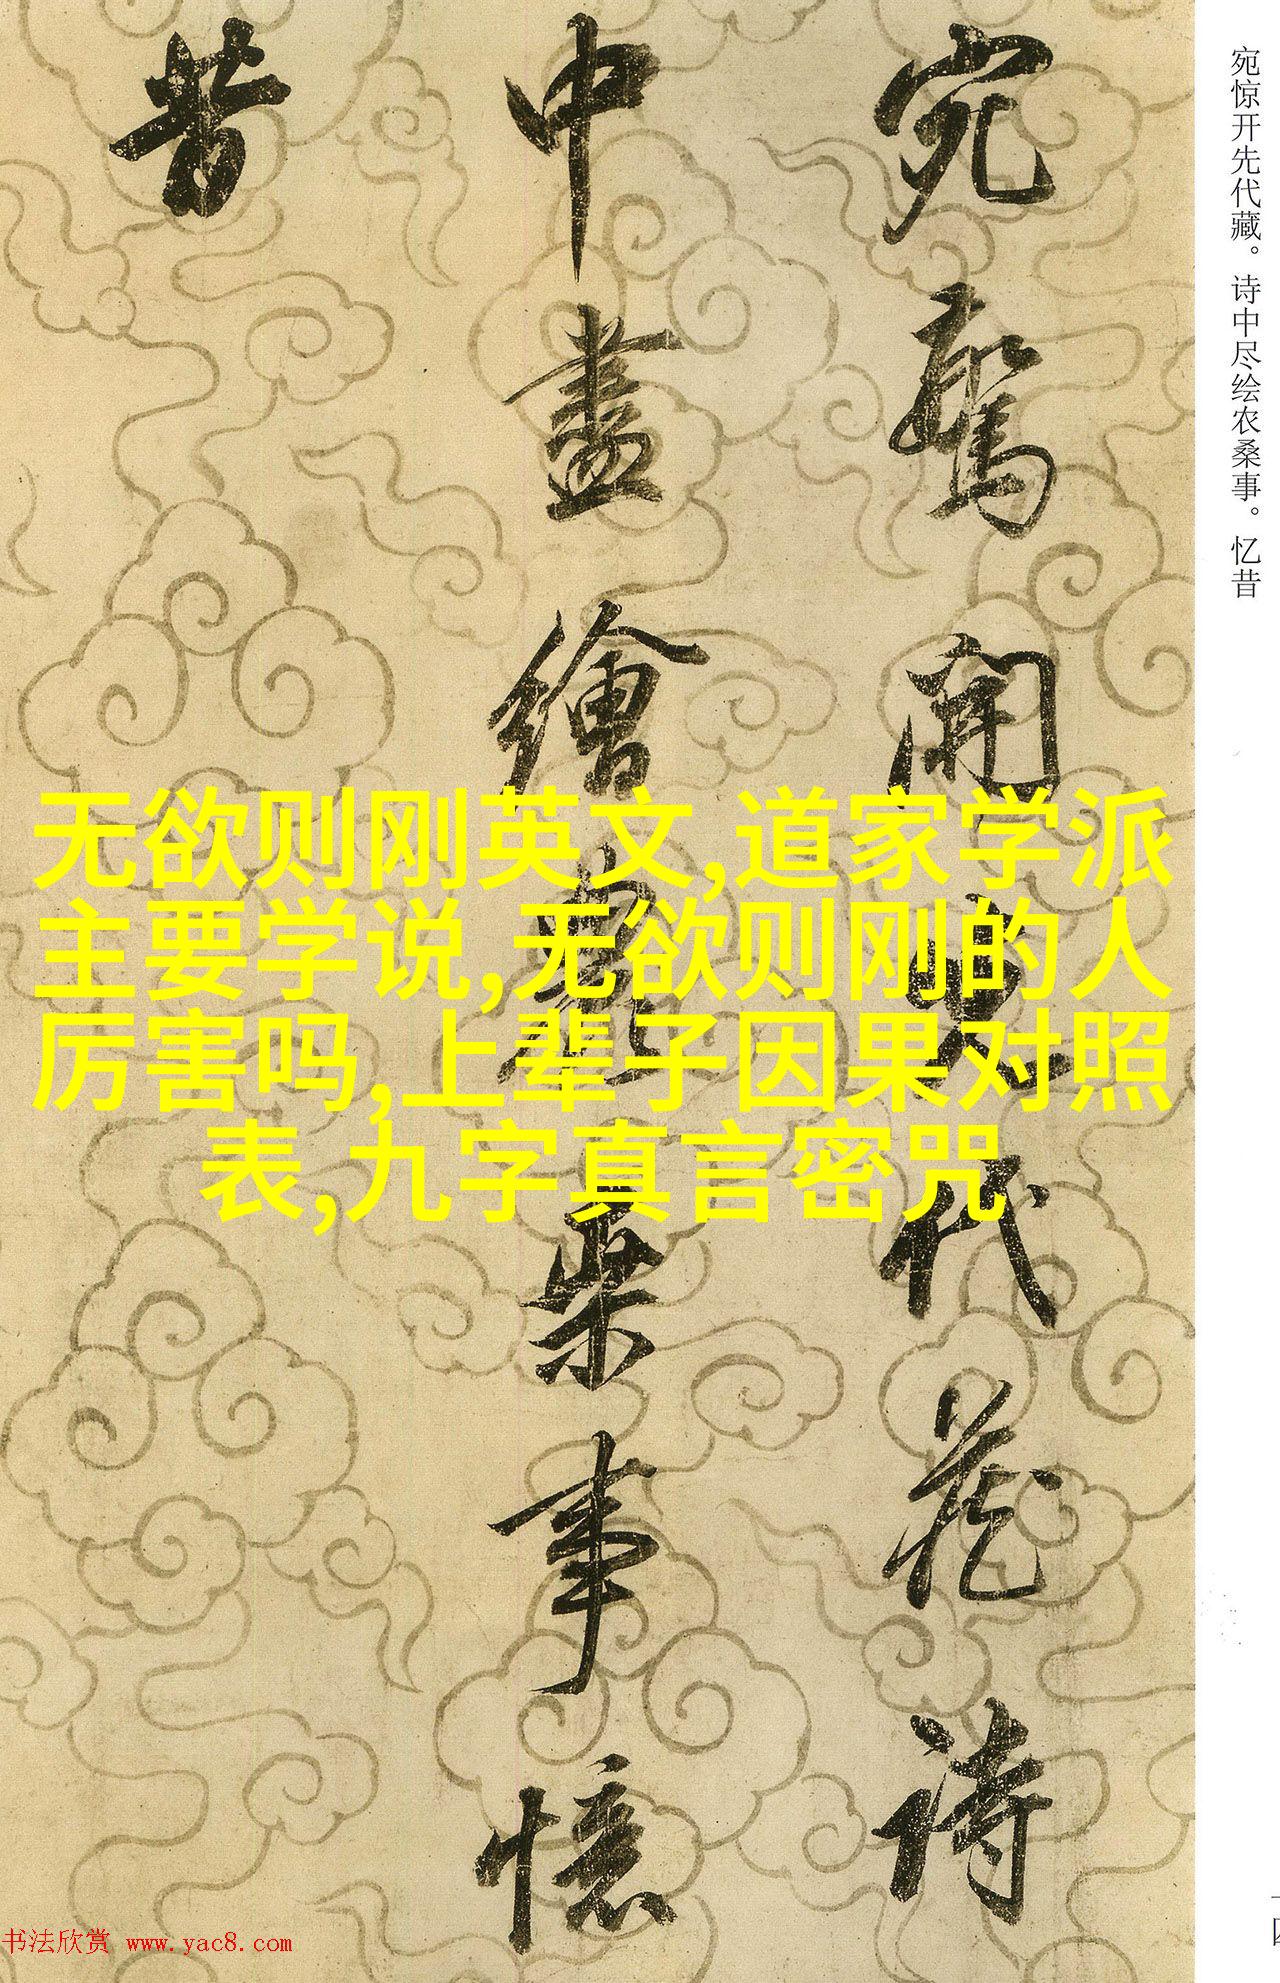 宛惊开先代藏。诗中尽绘农桑事。忆昔
宛驚開先代藏詩
中盡繪農桑事憶
昔
无欲则刚英文,道家学派
主要学说,无欲则刚的人
厉害吗,上辈子因果对照
表,九字真言密咒
书法欣赏 www.yac8.com